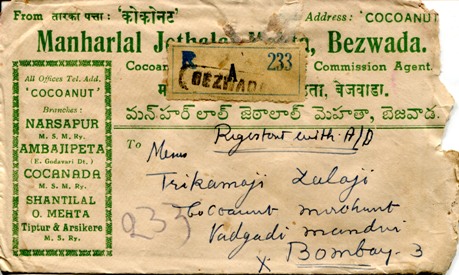 From तारका पत्ता: 'कोकोनट' Address: 'COCOANUT
Manharlal Mehta, Bezwada.
Cocoan Commission Agent.
R A 233
BEZWADA
मेहता, बेजवाडा.
మన్‌హర్‌లాల్ జెఠాలాల్ మెహతా, బెజవాడ.
All Offices Tel. Add.
'COCOANUT'
Branches:
NARSAPUR
M. S. M. Ry.
AMBAJIPETA
(E. Godavari Dt.)
COCANADA
M. S. M. Ry.
SHANTILAL
O. MEHTA
Tiptur & Arsikere
M. S. Ry.
Registard with A/D
To
Trikamaji Lalaji
Cocoanut merchant
Vadgadi mandvi
X Bombay-3
233